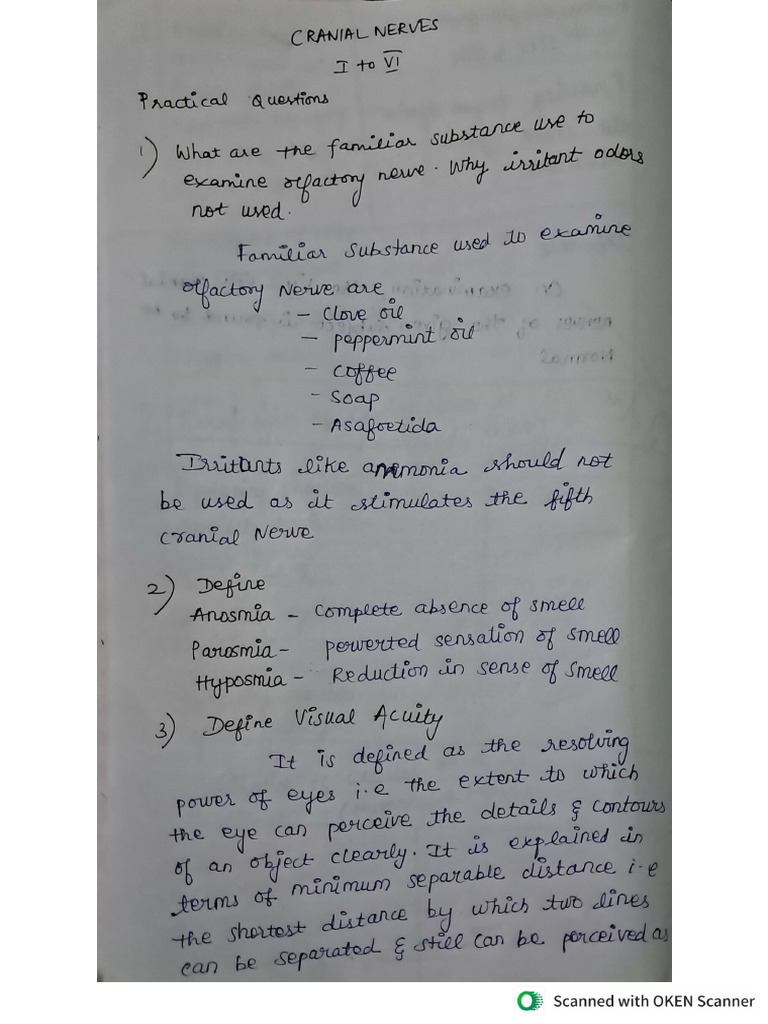 CRANIAL NERVES
I to VI
Practical Questions
1) What are the familiar substance use to
examine olfactory nerve. Why irritant odors
not used.
Familiar substance used to examine
olfactory Nerve are
- Clove oil
- peppermint oil
- Coffee
- Soap
- Asafoetida
Irritants like ammonia should not
be used as it stimulates the fifth
cranial Nerve
2) Define
Anosmia - Complete absence of smell
Parosmia - perverted sensation of smell
Hyposmia - Reduction in sense of smell
3) Define Visual Acuity
It is defined as the resolving
power of eyes i.e the extent to which
the eye can perceive the details & contours
of an object clearly. It is explained in
terms of minimum separable distance i.e
the shortest distance by which two lines
can be separated & still can be perceived as
Scanned with OKEN Scanner